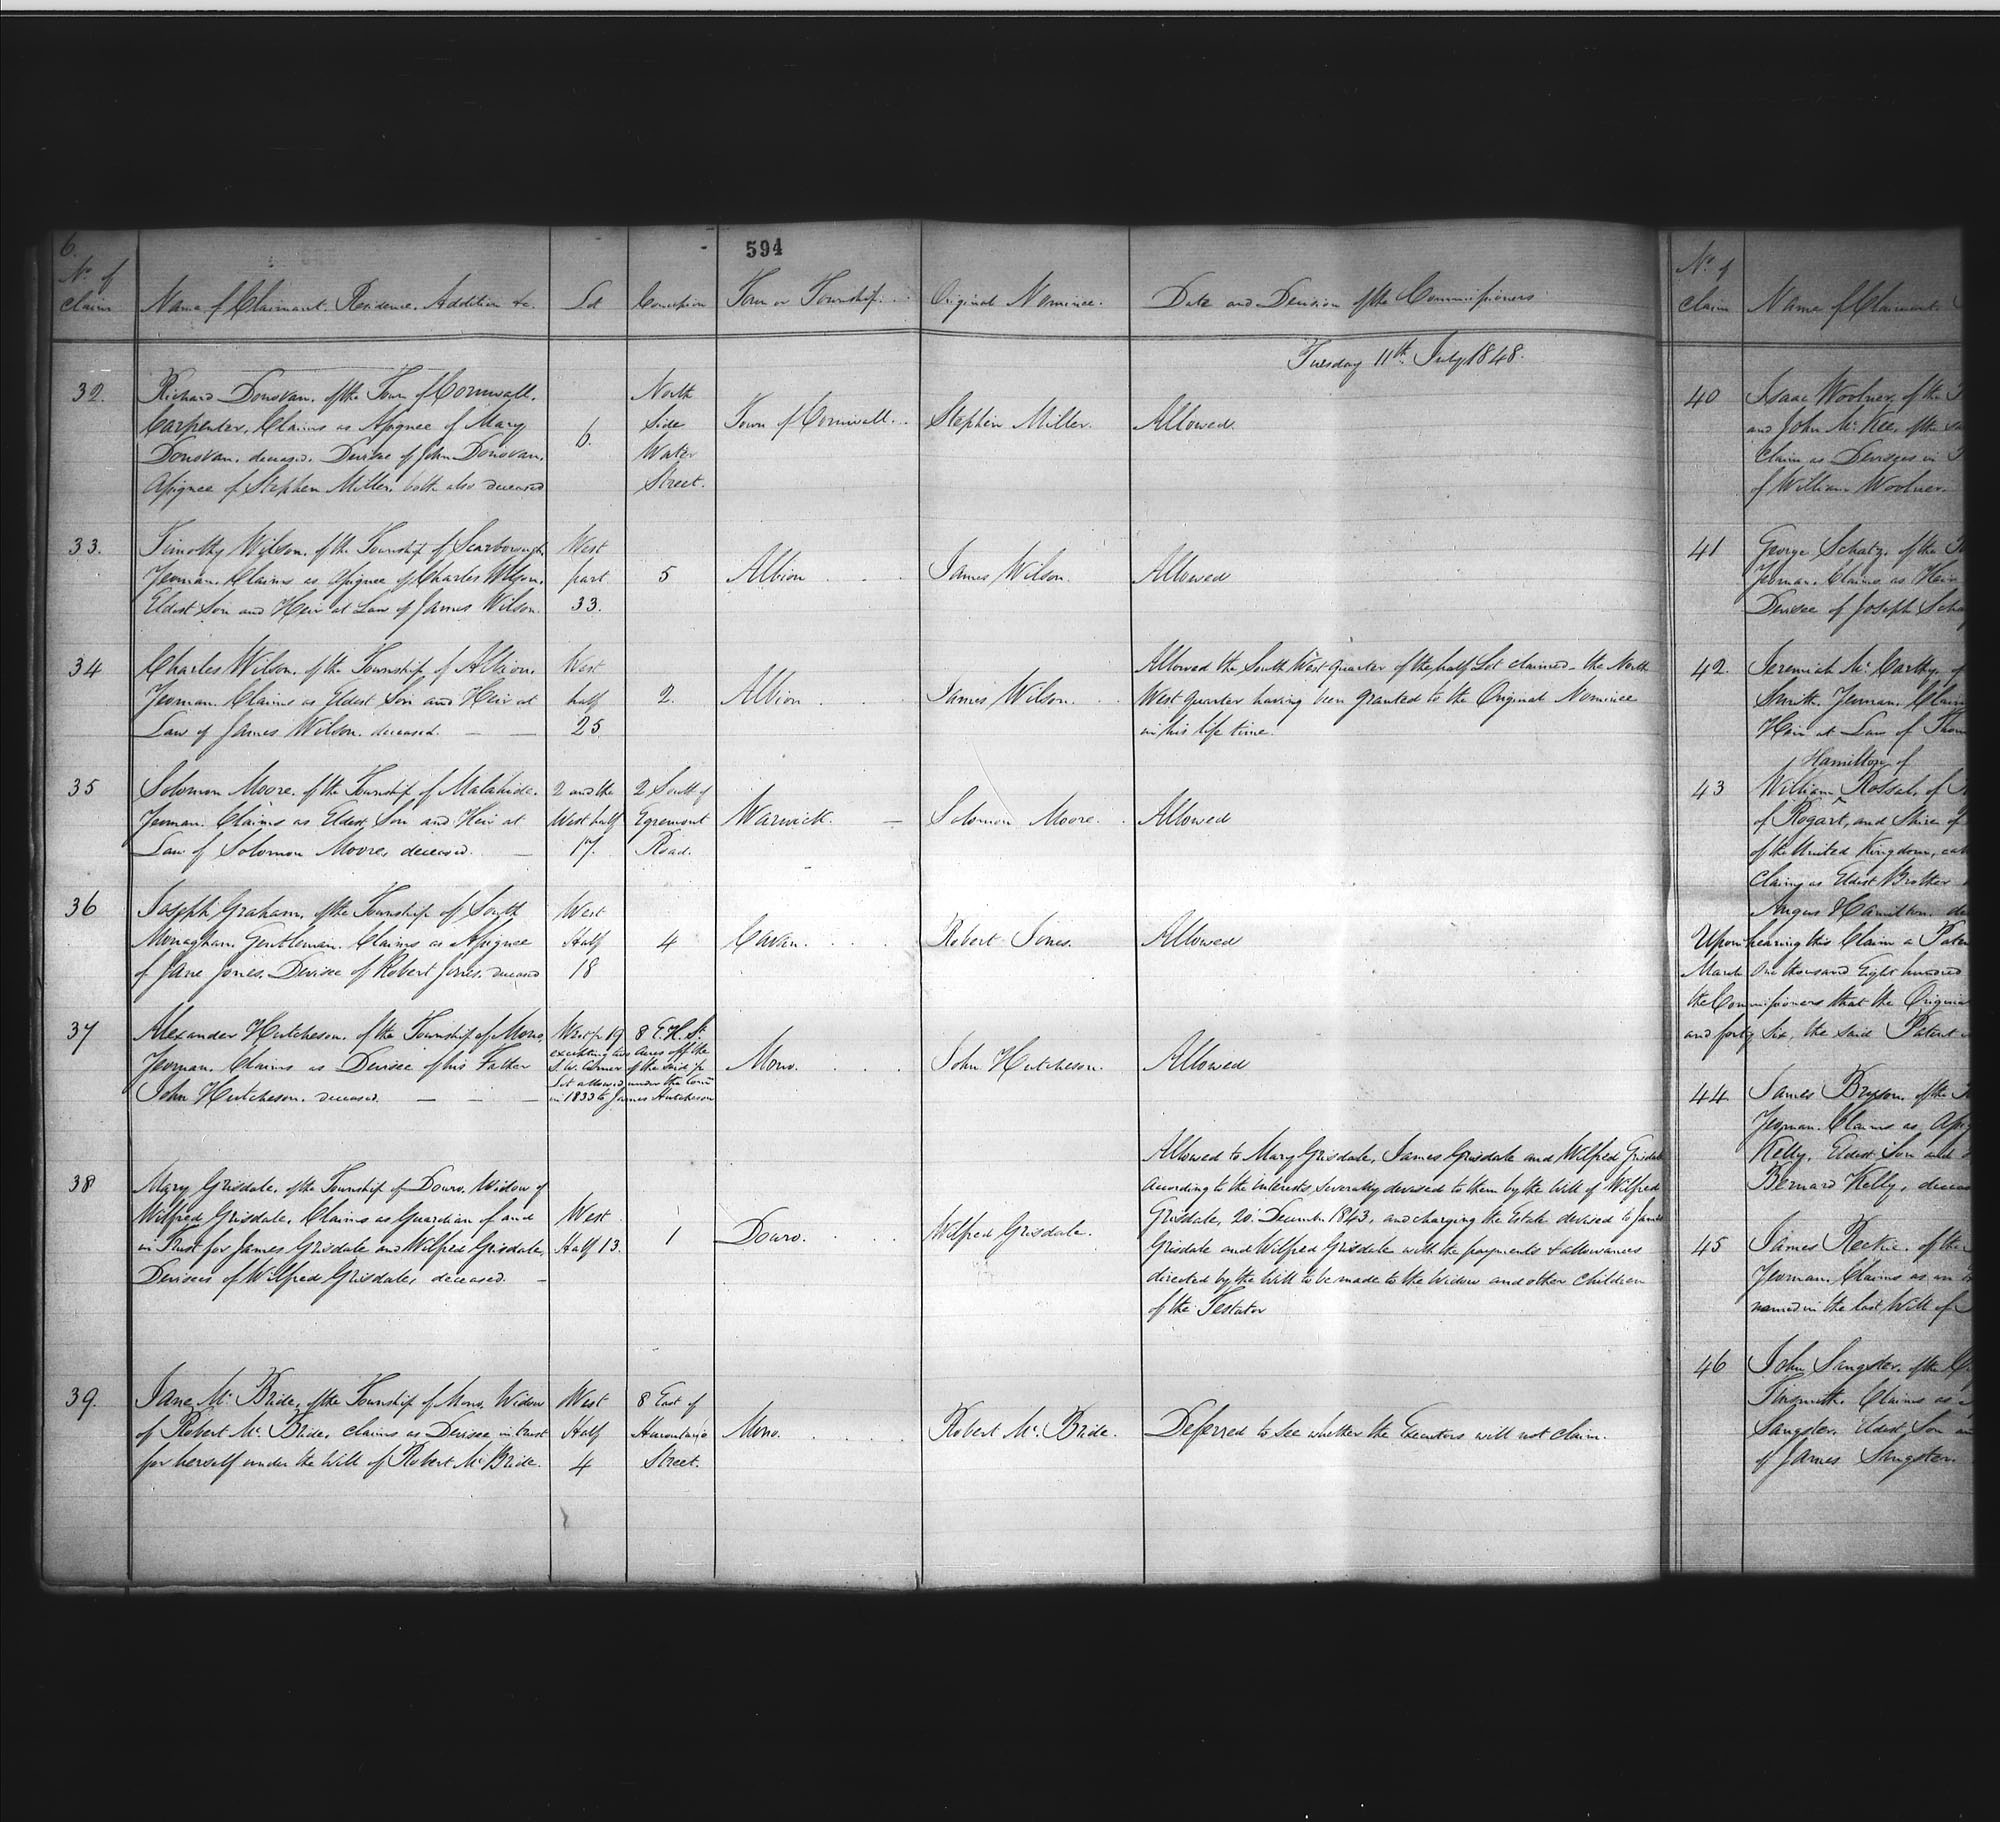 6.
594
No. of Claim
Name of Claimant. Residence. Addition &c.
Lot
Concession
Town or Township.
Original Nominee.
Date and Decision of the Commissioners
Tuesday 11th July 1848.
32.
Richard Donovan. of the Town of Cornwall.
Carpenter. Claims as Assignee of Mary
Donovan. deceased. Devisee of John Donovan.
Assignee of Stephen Miller. both also deceased
6.
North
Side
Water
Street.
Town of Cornwall
Stephen Miller.
Allowed
33.
Timothy Wilson. of the Township of Scarborough
Yeoman. Claims as Assignee of Charles Wilson.
Eldest Son and Heir at Law of James Wilson.
West
part
33.
5
Albion
James Wilson.
Allowed
34
Charles Wilson. of the Township of Albion.
Yeoman. Claims as Eldest Son and Heir at
Law of James Wilson. deceased.
West
half
25
2.
Albion
James Wilson.
Allowed the South West quarter of the half Lot claimed - the North
West quarter having been granted to the Original Nominee
in his life time.
35
Solomon Moore. of the Township of Malahide.
Yeoman. Claims as Eldest Son and Heir at
Law of Solomon Moore, deceased.
2 and the
West half
17.
2 South of
Egremont
Road.
Warwick.
Solomon Moore.
Allowed
36
Joseph Graham. of the Township of South
Monaghan. Gentleman. Claims as Assignee
of Jane Jones. Devisee of Robert Jones. deceased
West
Half
18
4
Cavan.
Robert Jones.
Allowed
37
Alexander Hutcheson. of the Township of Mono,
Yeoman. Claims as Devisee of his Father
John Hutcheson. deceased.
West p. 19 8 E. H. St.
excepting two Acres off the
S. W. Corner of the said p.
Lot allowed under the Comn
in 1833 to James Hutcheson
Mono.
John Hutcheson.
Allowed
38
Mary Grisdale. of the Township of Douro. Widow of
Wilfred Grisdale. Claims as Guardian of and
in Trust for James Grisdale and Wilfred Grisdale,
Devisees of Wilfred Grisdale, deceased.
West
Half 13.
1
Douro.
Wilfred Grisdale.
Allowed to Mary Grisdale, James Grisdale and Wilfred Grisdale
According to the interests severally devised to them by the Will of Wilfred
Grisdale, 20. Decembr. 1843, and charging the Estate devised to James
Grisdale and Wilfred Grisdale with the payments & allowances
directed by the Will to be made to the Widow and other Children
of the Testator
39.
Jane Mc Bride, of the Township of Mono. Widow
of Robert Mc Bride. claims as Devisee in trust
for herself under the Will of Robert Mc Bride.
West
Half
4
8 East of
Hurontario
Street.
Mono.
Robert Mc Bride.
Deferred to see whether the Executors will not claim.
No. of Claim
Name of Claimant.
40
Isaac Woolner, of the
and John Mc Kee, of the
Claim as Devisees in
of William Woolner.
41
George Schatz, of the
Yeoman. Claims as Heir
Devisee of Joseph
42.
Jeremiah Mc Carthy, of
Smith. Yeoman. Claim
Heir at Law of
43
Hamilton, of
William Rossal, of
of Rogart, and Shire of
of the United Kingdom,
Claims as Eldest Brother
Angus Hamilton.
Upon hearing this Claim a
March One thousand Eight hundred
the Commissioners that the
and forty Six, the said Patent
44.
James Bryson. of the
Yeoman. Claims as
Kelly, Eldest Son and
Bernard Kelly,
45
James Reekie. of the
Yeoman. Claims as
named in the last Will of
46
John Sangster, of the
Tinsmith. Claims as
Sangster. Eldest Son
of James Sangster.